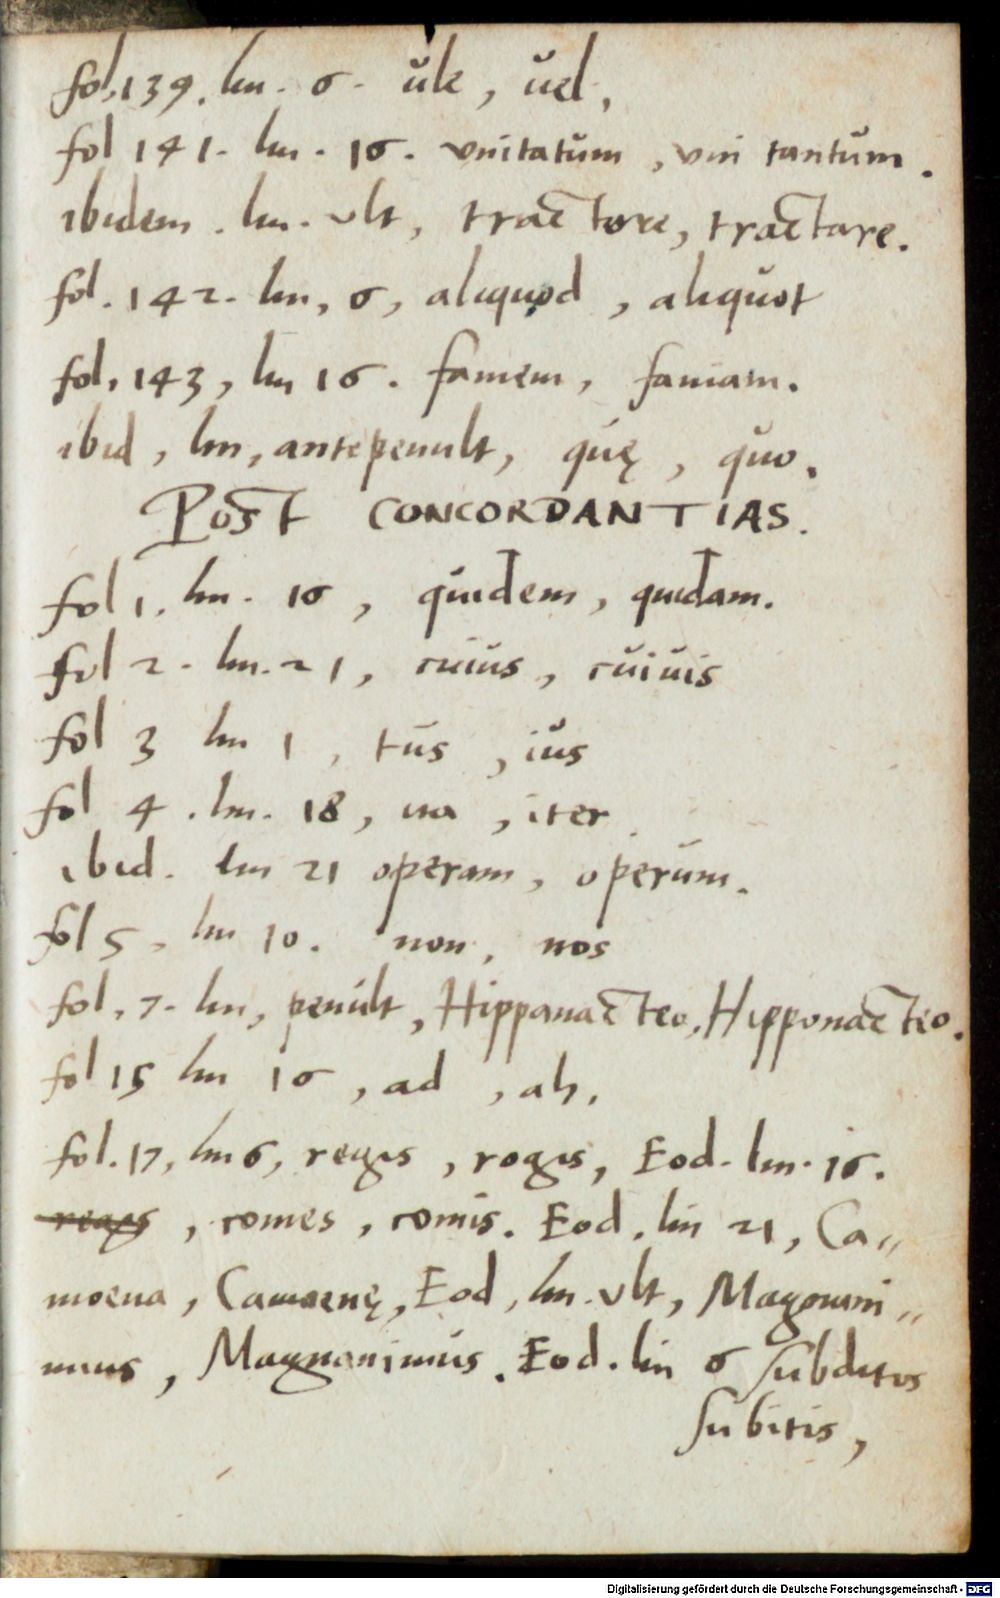 fol. 139. lin. 6. ule, uel,
fol 141. lin. 16. vnitatum, vni tantum.
ibidem. lin. vlt, tractore, tractare.
fol. 142. lin, 6, aliquod, aliquot
fol, 143, lin 16. famem, famam.
ibid, lin, antepenult, quę, quo.
Post CONCORDANTIAS.
fol 1. lin. 16, quidem, quidam.
fol 2. lin. 21, cuius, cuiuis
fol 3 lin 1, tus, ius
fol 4. lin. 18, ita, iter
ibid. lin 21 operam, operum.
fol 5, lin 10. non, nos
fol. 7. lin, penult, Hippanacteo, Hipponacteo.
fol 15 lin 16, ad, ah,
fol. 17, lin 6, regis, rogis, Eod. lin. 16.
regis, comes, comis. Eod. lin 21, Ca〃
moena, Camoenę, Eod, lin. vlt, Magonani〃
mus, Magnanimus. Eod. lin 6 subditos
subitis,
Digitalisierung gefördert durch die Deutsche Forschungsgemeinschaft - DFG